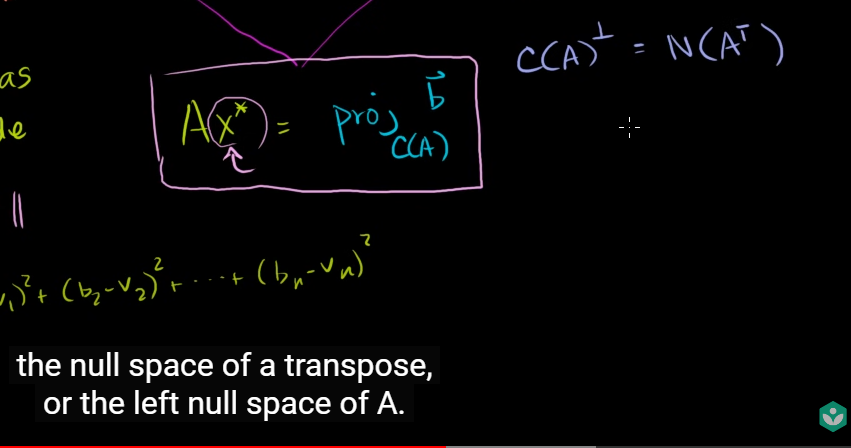 C(A)^⊥ = N(A^T)
as
Ax* = proj_C(A) b⃗
||
)² + (b₂-v₂)² + ... + (bₙ-vₙ)²
the null space of a transpose,
or the left null space of A.